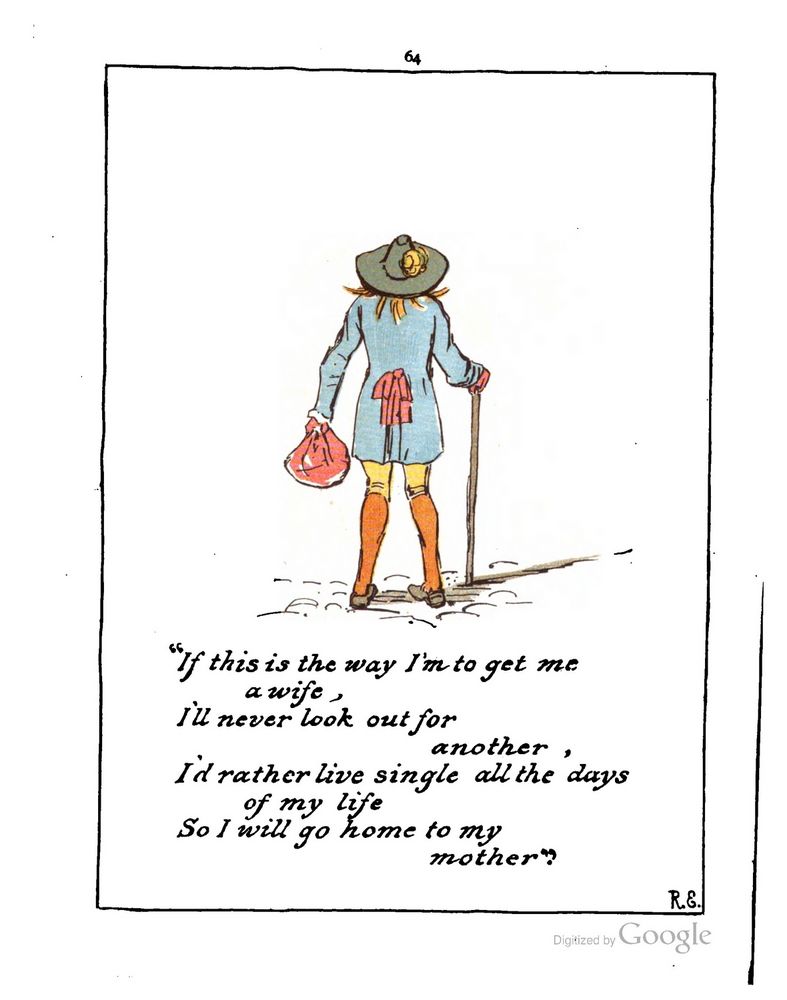 64
“If this is the way I'm to get me
a wife,
I'll never look out for
another,
I'd rather live single all the days
of my life
So I will go home to my
mother”.
R.E.
Digitized by Google